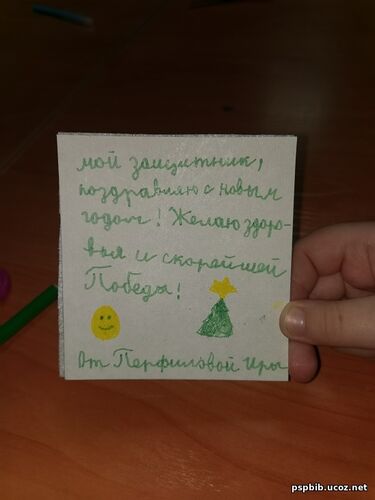 мой защитник,
поздравляю с новым
годом! Желаю здоро-
вья и скорейшей
Победы!
От Перфиловой Иры
pspbib.ucoz.net